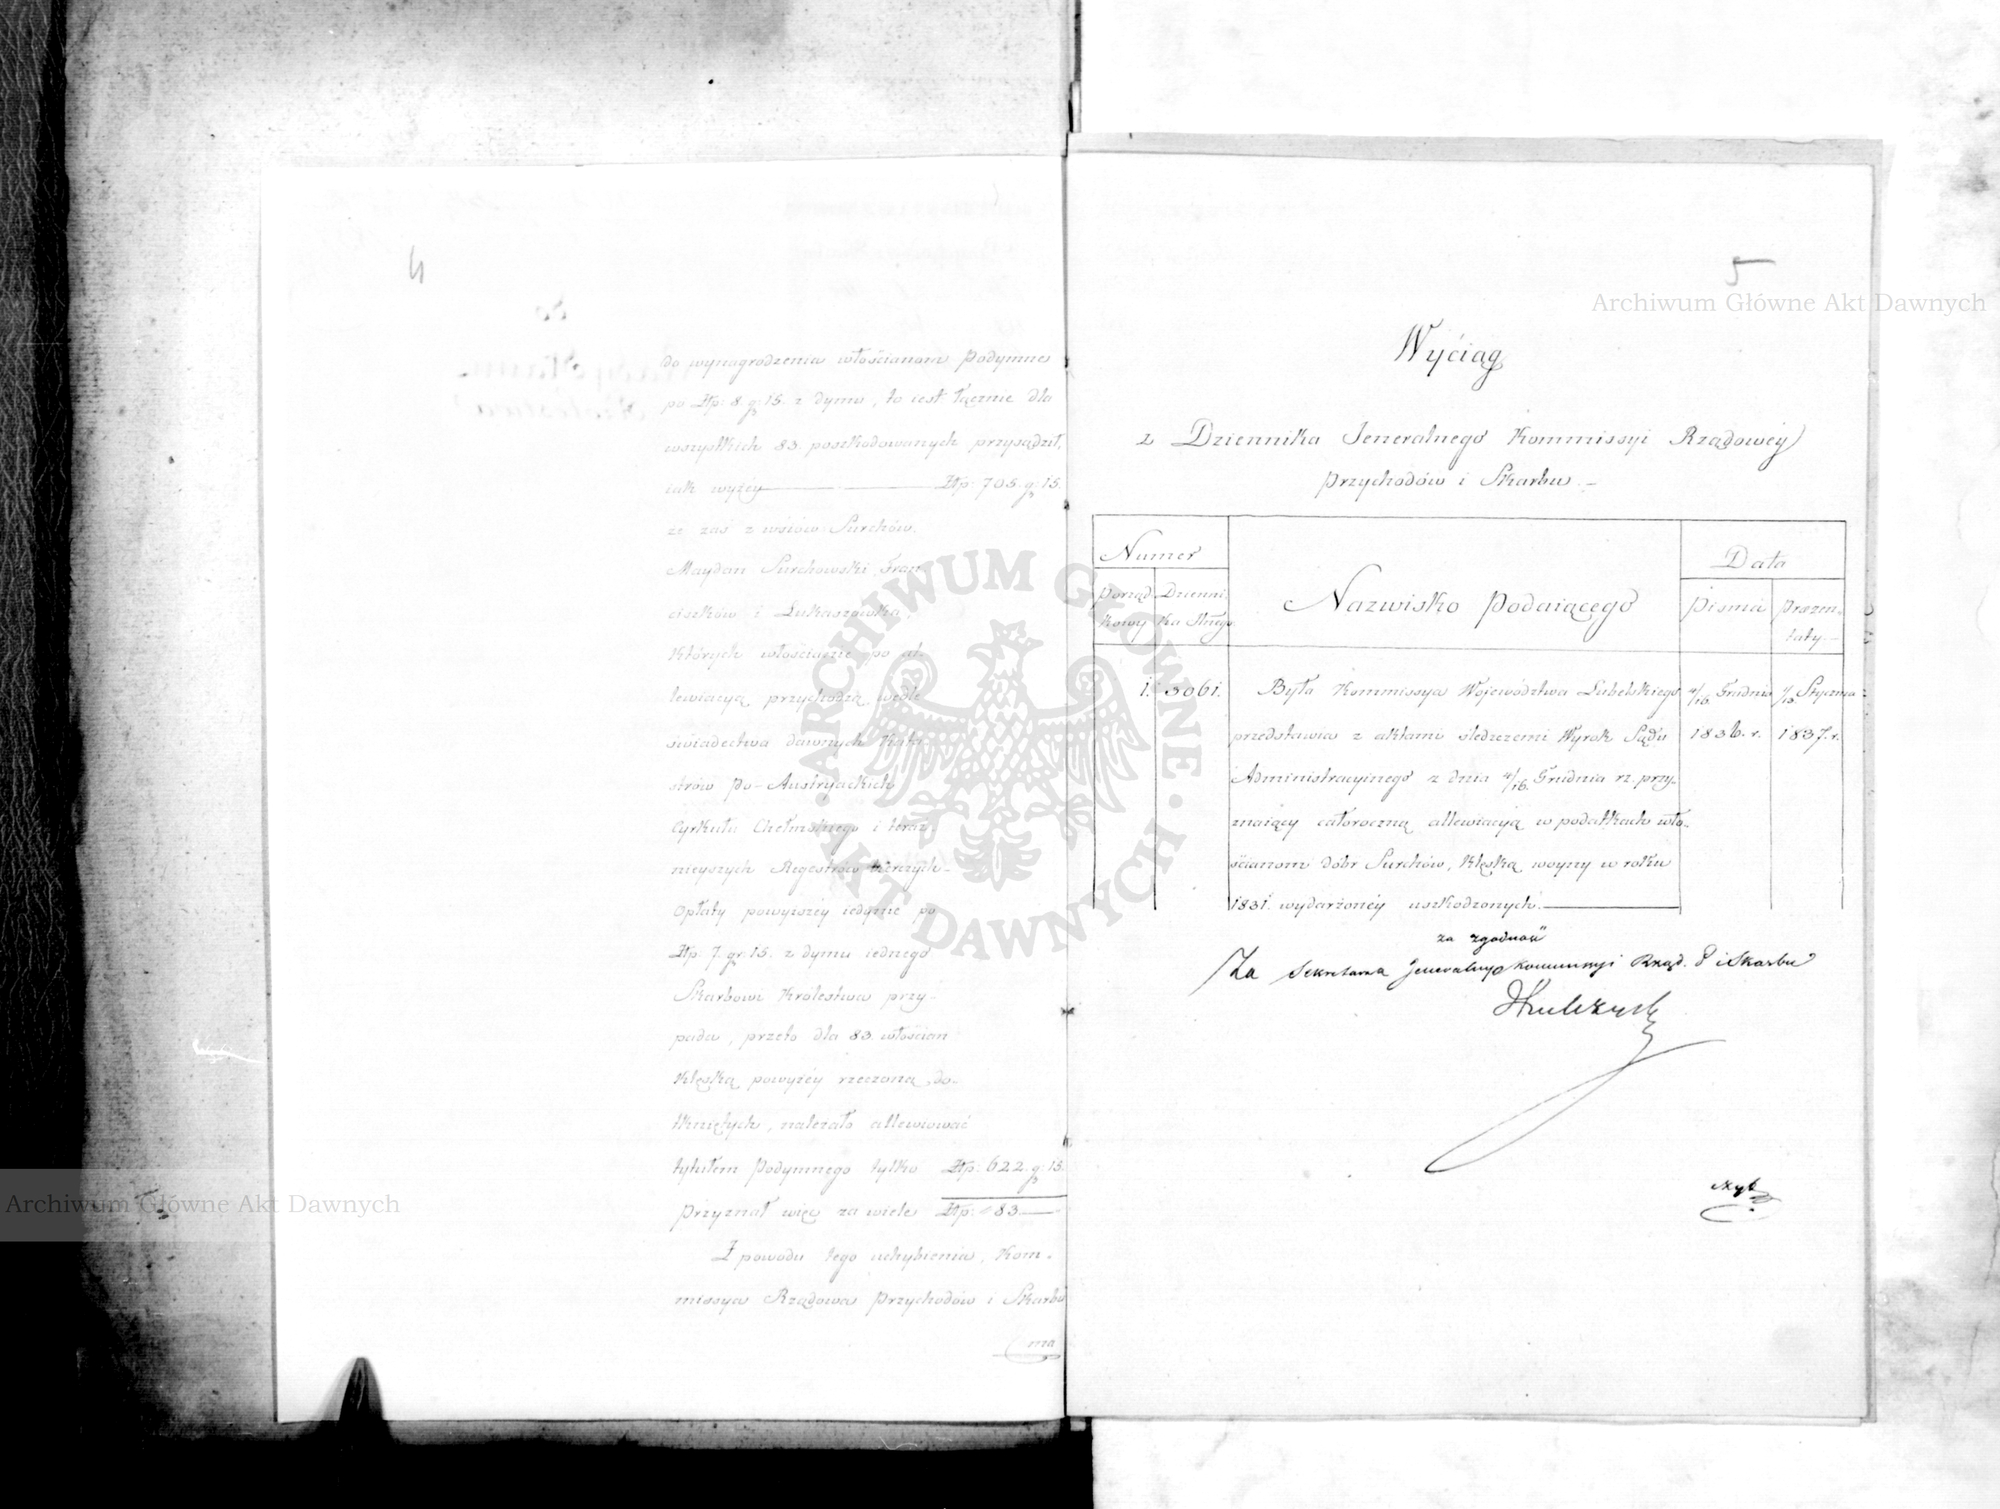 4
do wynagrodzenia włościanom Podymne
po Złp: 8. g: 15. z dymu, to iest łącznie dla
wszystkich 83. poszkodowanych przysądził,
iak wyżey Złp: 705. g: 15.
że zaś z wsiów Surchów,
Maydan Surchowski, Fran
ciszków i Łukaszówka,
których włościanie po al-
lewiacyą przychodzą, wedle
świadectwa dawnych Kata-
strów po-Austryackich
Cyrkułu Chełmskiego i teraz-
nieyszych Regestrów
Opłaty powyższey iedynie po
Złp: 7. gr: 15. z dymu iednego
Skarbowi Królestwa przy-
pada, przeto dla 83. włościan
klęską powyżéy rzeczoną do-
tkniętych, należało allewiować
tytułem Podymnego tylko Złp: 622. g: 15.
Przyznał więc za wiele Złp: 83.
Z powodu tego uchybienia, Kom-
missya Rządowa Przychodów i Skarbu
ma
5
Archiwum Główne Akt Dawnych
Wyciąg
z Dziennika Jeneralnego Kommissyi Rządowéy
Przychodów i Skarbu.
Numer
Data
Porząd- Dzienni-
Nazwisko Podaiącego
Pisma Prezen-
kowy ka Głneg.
taty.
1. 3061. Była Kommissya Województwa Lubelskiego 4/16. Grudnia 1/13. Stycznia
przedstawia z aktami śledczemi Wyrok Sądu 1836. r. 1837. r.
Administracyinego z dnia 4/16. Grudnia rz. przy-
znaiący całoroczną allewiacyą w podatkach wło-
ścianom dóbr Surchów, klęską woyny w roku
1831. wydarzonéy uszkodzonych.
za zgodność
Za Sekretarza Jeneralnego Kommissyi Rząd. P i Skarbu
ARCHIWUM GŁÓWNE AKT DAWNYCH
Archiwum Główne Akt Dawnych